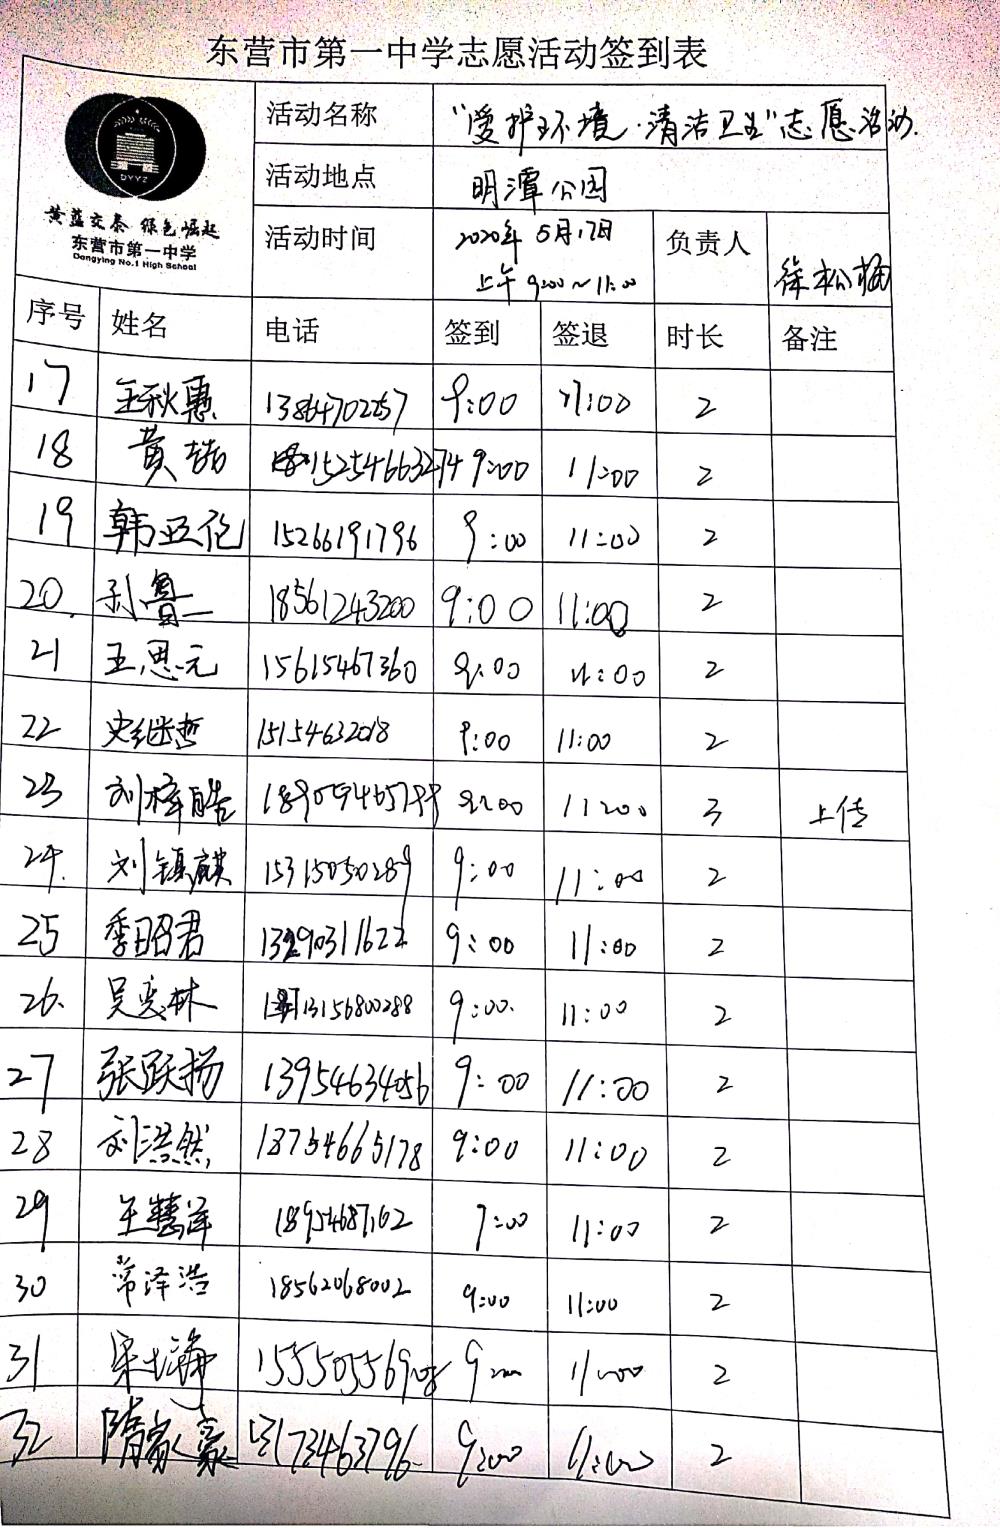 东营市第一中学志愿活动签到表
DYYZ
黄蓝交泰 绿色崛起
东营市第一中学
Dongying No.1 High School
活动名称 "爱护环境·清洁卫生"志愿活动.
活动地点 明潭公园
活动时间 2020年5月17日 上午9:00~11:00 负责人 徐松梅
序号 姓名 电话 签到 签退 时长 备注
17 王秋惠 13864702257 9:00 11:00 2
18 黄喆 15254663274 9:00 11:00 2
19 韩亚伦 15266191796 9:00 11:00 2
20. 刘鲁一 18561243200 9:00 11:00 2
21 王思元 15615467360 9:00 11:00 2
22 史继哲 15154632018 9:00 11:00 2
23 刘梓皓 9:00 11:00 3 上传
24. 刘镇麒 15315050289 9:00 11:00 2
25 季昭君 13290311622 9:00 11:00 2
26. 吴奕林 13156800288 9:00. 11:00 2
27 张跃扬 13954634056 9:00 11:00 2
28 刘浩然 18754665178 9:00 11:00 2
29 王慧泽 18954687162 9:00 11:00 2
30 常泽浩 18562068002 9:00 11:00 2
31 9:00 11:00 2
32 隋家豪 9:00 11:00 2